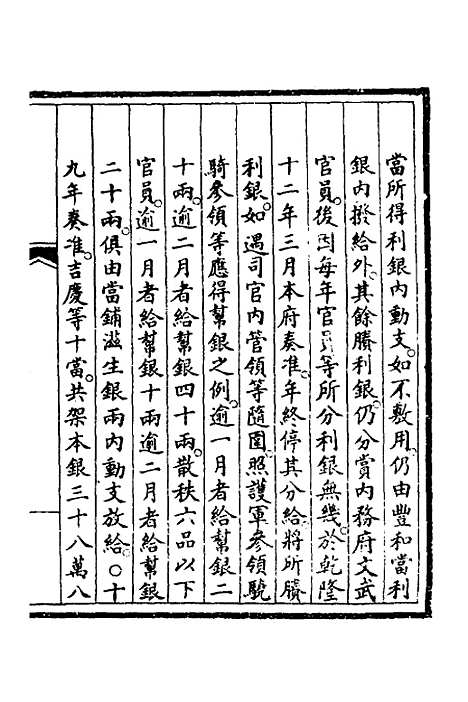 當所得利銀内動支。如不敷用。仍由豐和當利
銀内撥給外。其餘賸利銀。仍分賞内務府文武
官員。後因每年官員等所分利銀無幾。於乾隆
十二年三月本府奏准。年終停其分給。將所賸
利銀。如遇司官内管領等隨圍。照護軍參領驍
騎參領等應得幫銀之例。逾一月者給幫銀二
十兩。逾二月者給幫銀四十兩。散秩六品以下
官員。逾一月者給幫銀十兩逾二月者給幫銀
二十兩。俱由當鋪滋生銀兩内動支放給。○十
九年奏准。吉慶等十當。共架本銀三十八萬八